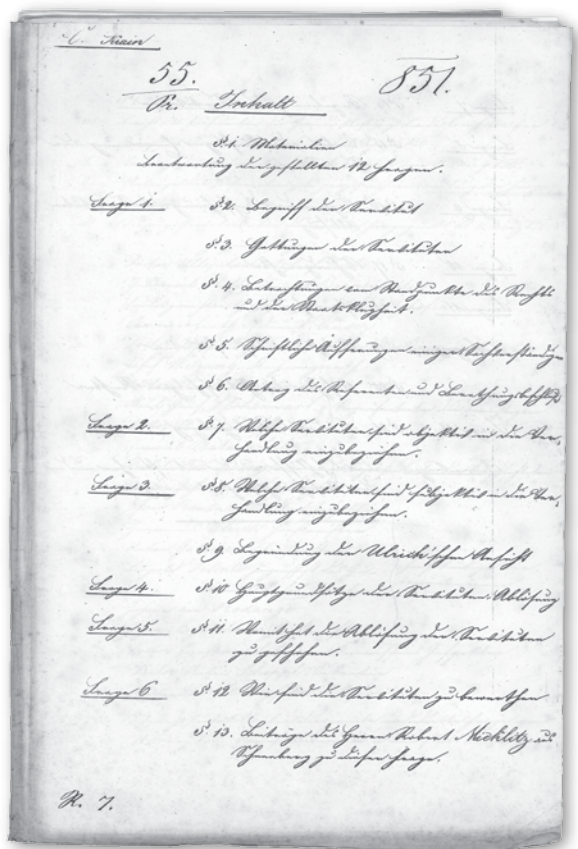 C. Krain
55.
851.
Pr. Inhalt
§ 1. Materialien
Beantwortung der gestellten 12 Fragen.
Frage 1. § 2. Begriff der Servitut
§ 3. Gattungen der Servituten
§ 4. Betrachtungen vom Standpunkte des Rechts
und der Staatsklugheit.
§ 5. Schriftliche Äußerungen einiger Sachverständigen
§ 6. Antrag des Referenten und Berathungsbeschluß
Frage 2. § 7. Welche Servituten sind objektiv in die Ver-
handlung einzubeziehen.
Frage 3. § 8. Welche Servituten sind subjektiv in die Ver-
handlung einzubeziehen.
§ 9 Begründung der Ulrich'schen Ansicht
Frage 4. § 10 Hauptgrundsätze der Servituten-Ablösung
Frage 5. § 11. Womit hat die Ablösung der Servituten
zu geschehen.
Frage 6 § 12 Wie sind die Servituten zu bewerthen
§ 13. Beiträge des Herrn Robert Nicklitz aus
Schneeberg zu dieser Frage.
R. 7.